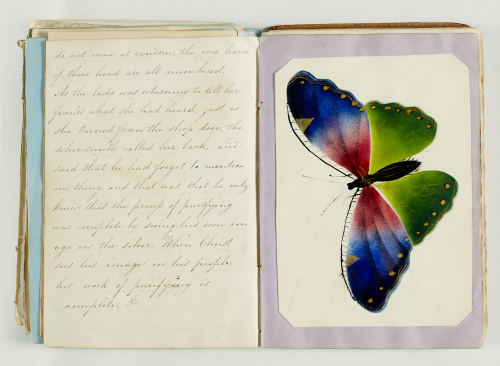 do not come at random, the very hairs
of their head are all numbered.
As the lady was returning to tell her
friends what she had heard, just as
she turned from the shop door, the
silversmith called her back, and
said that he had forgot to mention
one thing, and that was, that he only
knew that the process of purifying
was complete by seeing his own im
age in the silver. When Christ
sees his image in his people,
his work of purifying is
complete. &